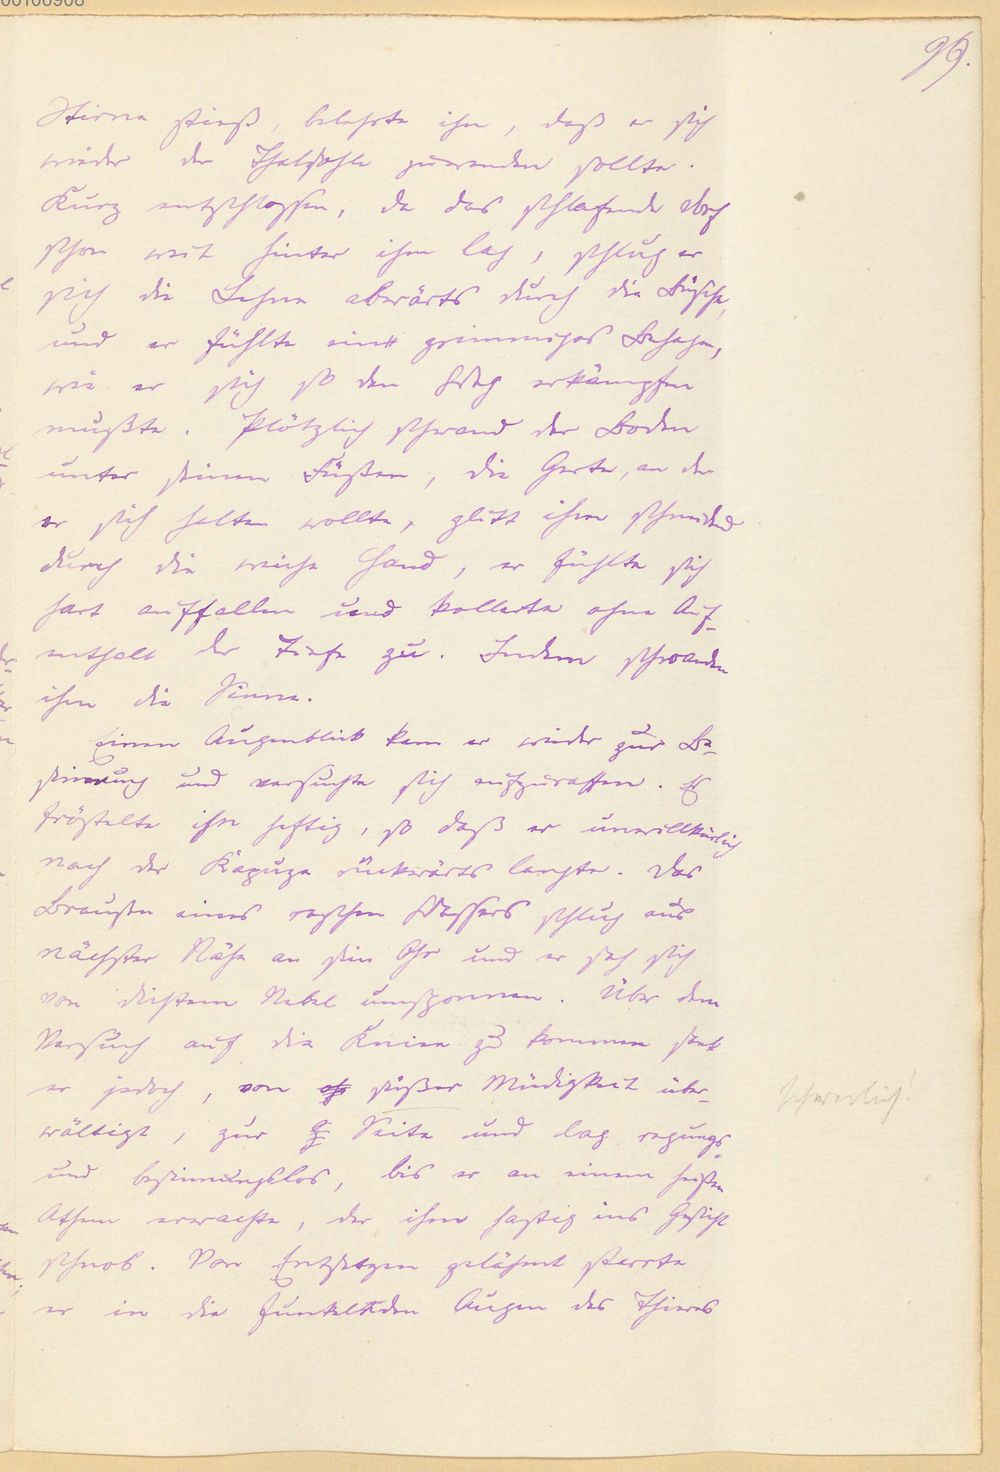 99.
Stirne stieß, belehrte ihn, daß er sich
wieder der Thalsohle zuwenden sollte.
Kurz entschlossen, da das schlafende Dorf
schon weit hinter ihm lag, schlug er
sich die Lehne abwärts durch die Büsche,
und er fühlte ein grimmiges Behagen,
wie er sich so den Weg erkämpfen
mußte. Plötzlich schwand der Boden
unter seinen Füßen, die Gerte, an der
er sich halten wollte, glitt ihm schneidend
durch die weiche Hand, er fühlte sich
hart auffallen und kollerte ohne Auf-
enthalt der Tiefe zu. Indem schwanden
ihm die Sinne.
Einen Augenblick kam er wieder zur Be-
sinnung und versuchte sich aufzuraffen. Es
fröstelte ihn heftig, so daß er unwillkürlich
nach der Kapuze rückwärts langte. Das
Brausen eines raschen Wassers schlug aus
nächster Nähe an sein Ohr und er sah sich
von dichtem Nebel umsponnen. Über dem
Versuch auf die Kniee zu kommen sank
er jedoch, von süßer Müdigkeit über-
wältigt, zur Seite und lag regungs-
und besinnungslos, bis er an einem heißen
Athem erwachte, der ihm hastig ins Gesicht
schnob. Von Entsetzen gelähmt starrte
er in die funkelnden Augen des Thieres
schwerlich!